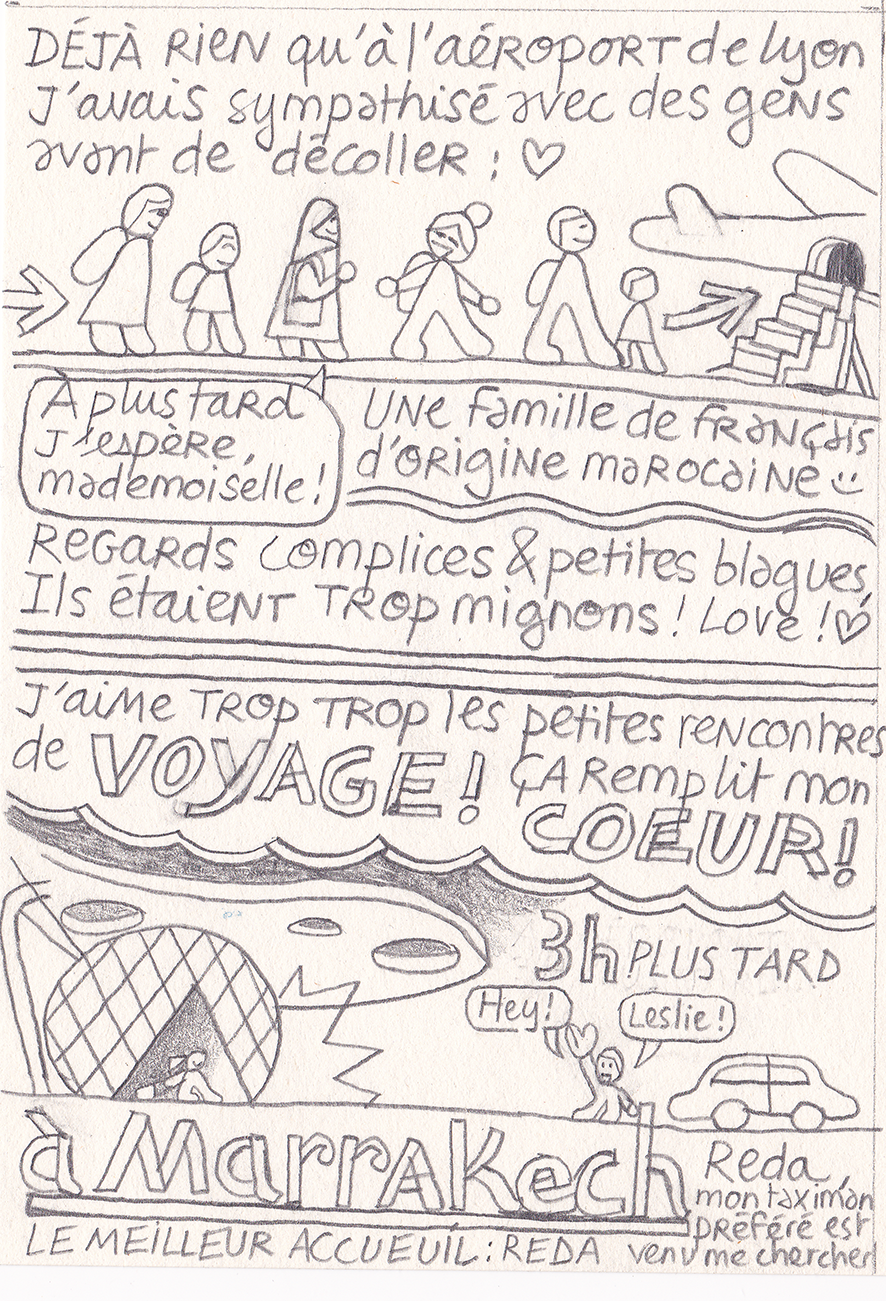 DÉJÀ RIEN qu'à l'aéROPORT de lyon
J'avais sympathisé avec des gens
avant de décoller : ♡
À plus tard
J'espère,
mademoiselle !
UNE famille de fRANçais
d'ORigiNe maROcaiNe
REGARDS complices & petites blagues,
Ils étaieNT TROp mignons ! Love ! ♡
J'aiMe TROP TROP les petites reNcontres
de VOYAGE ! ÇA Remplit mon
COEUR !
3h PLUS TARD
Hey !
Leslie !
à MarrAKech
Reda,
mon taximan
préféré est
venu me chercher
LE MEILLEUR ACCUEUIL : REDA